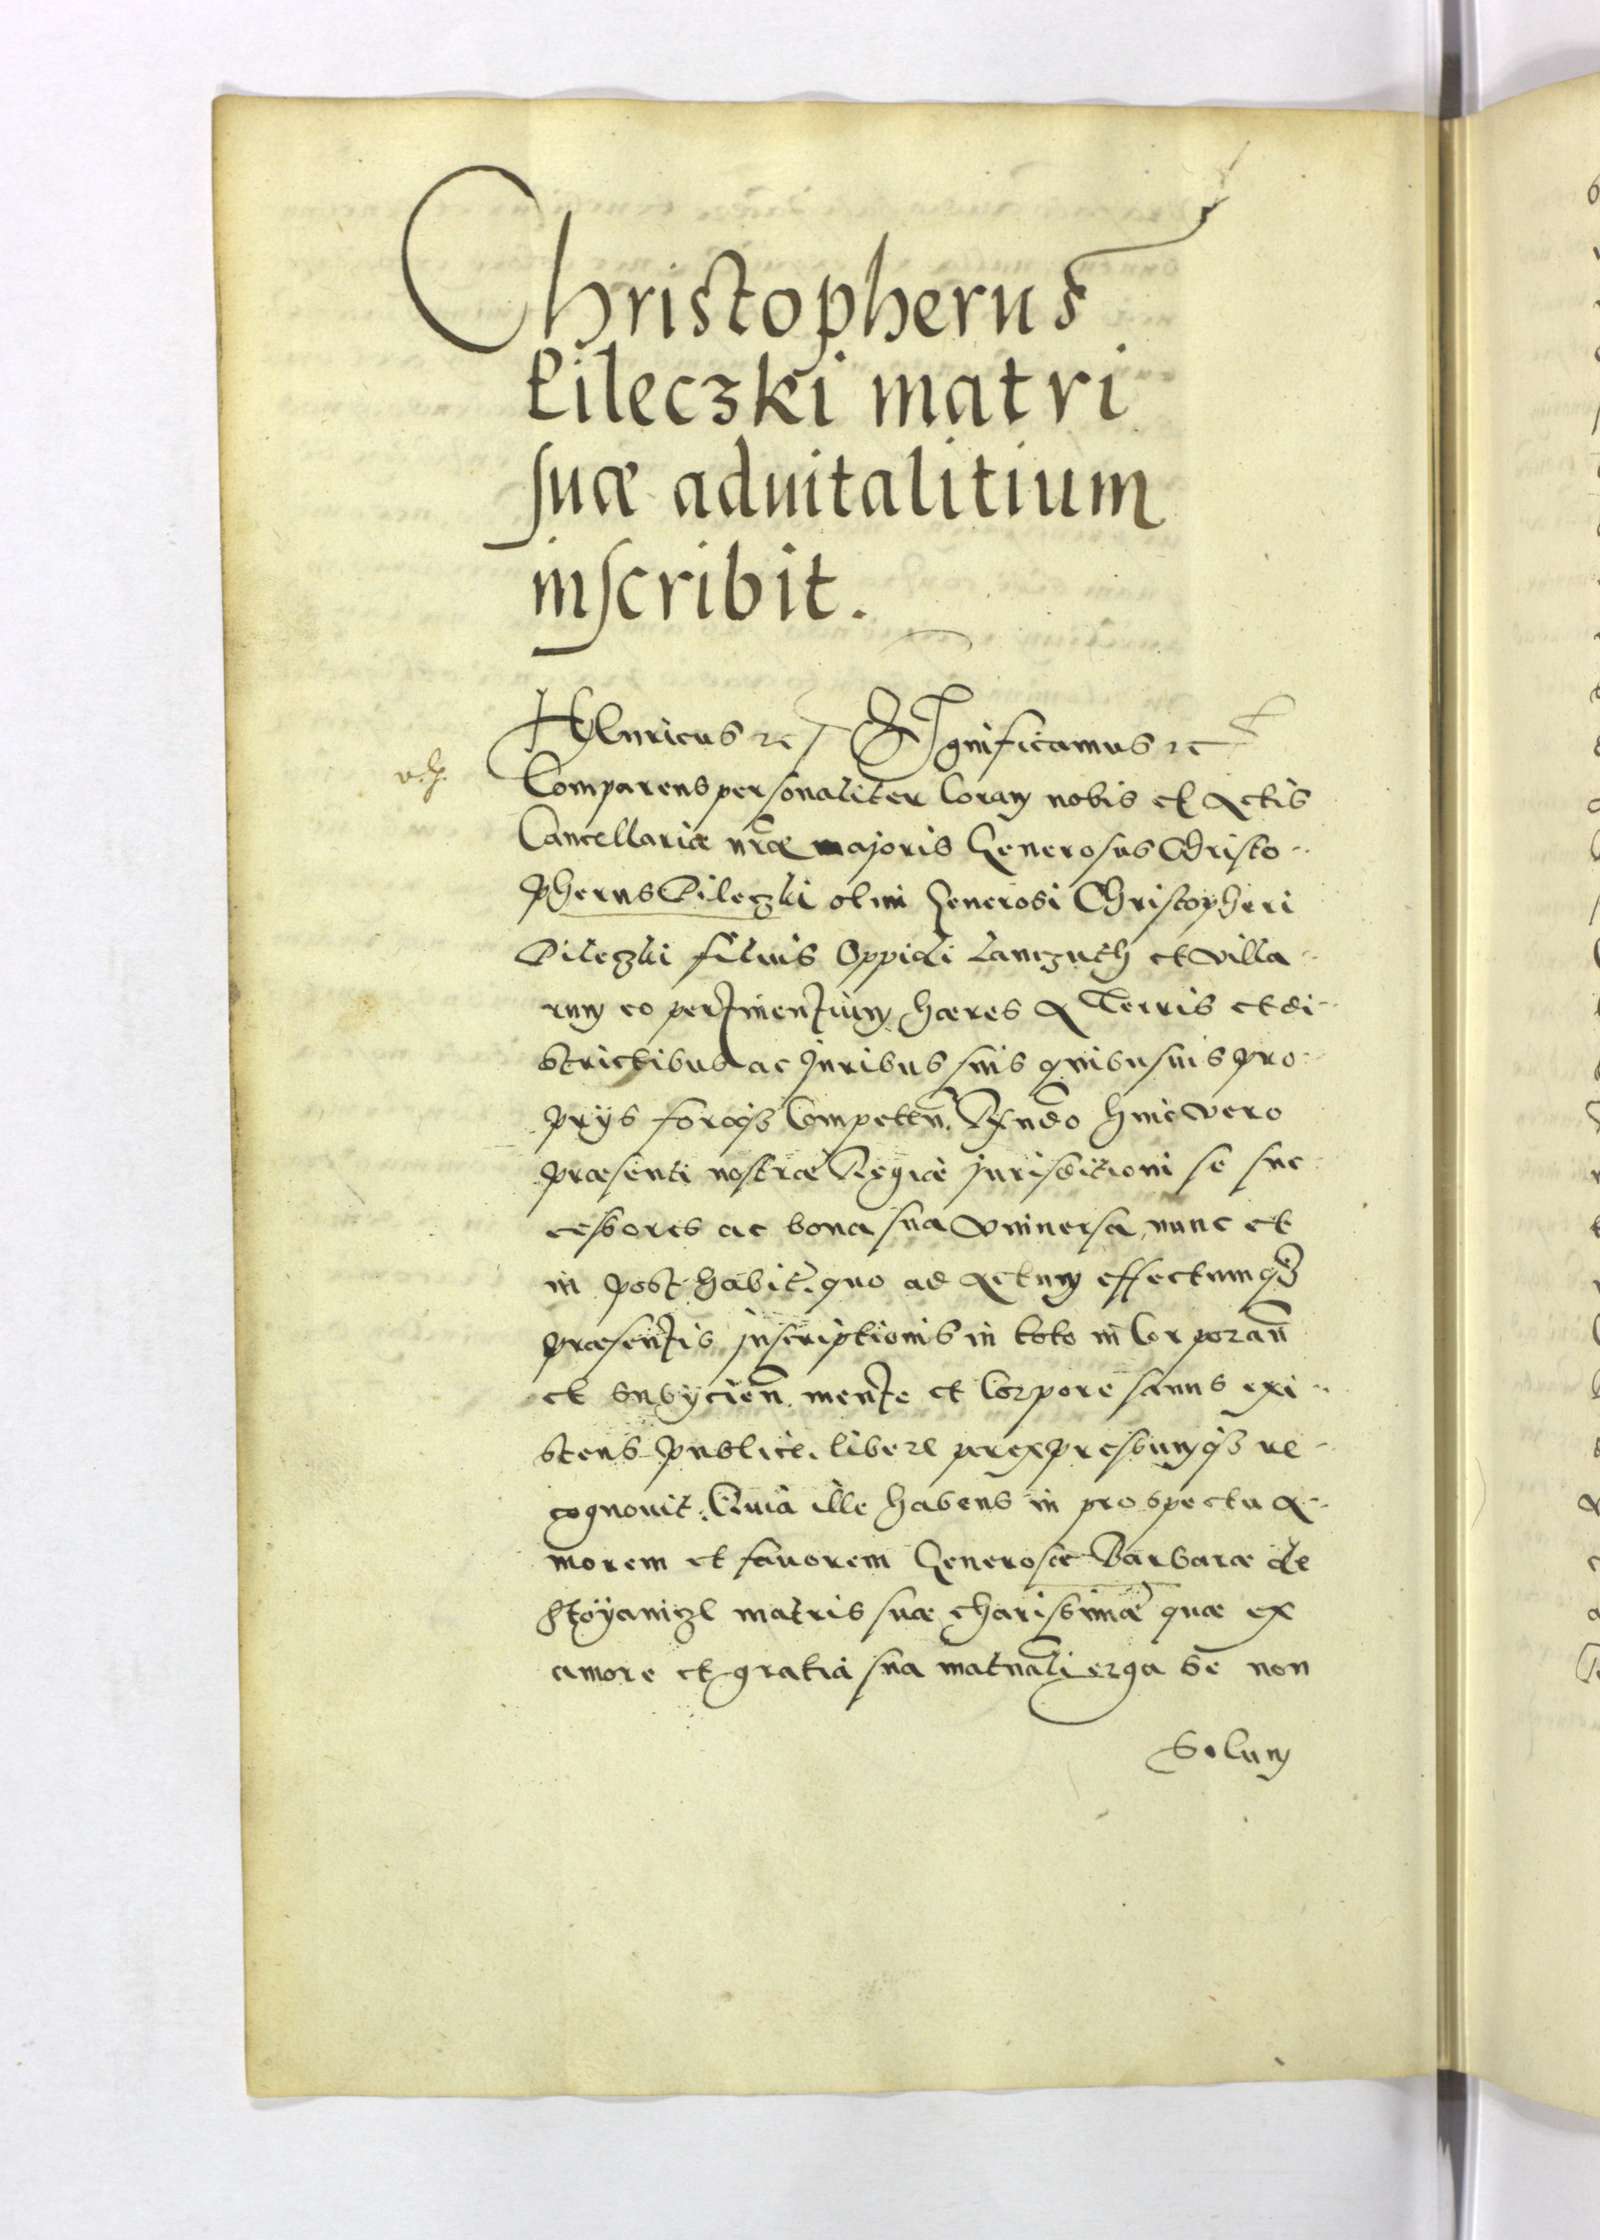 Christopherus
Pileczki matri
suæ aduitalitium
inscribit.
Henricus etc Significamus etc
Comparens personaliter Coram nobis et Actis
Cancellariæ nr̃æ majoris Generosus Christo-
pherus Pileczki olim Generosi Christopheri
Pileczki filius Oppidi Lanczuth et villa-
rum eo pertinentium hæres A Terris et di-
strictibus ac Juribus suis quibusuis pro-
prijs foroq3 Competen̄. Rcndo huic vero
præsenti nostræ Regiæ jurisdictioni se suc-
cessores ac bona sua vniuersa, nunc et
in post habit. quo ad Actum effectumq3
præsentis jnscriptionis in toto inCorporan̄
et subijcien̄. mente et Corpore sanus exi-
stens publice. libere per expressumq3 re-
cognouit. Quia ille habens in prospectu A-
morem et fauorem Generosæ Barbaræ de
Stoyanicze matris suæ charissimæ quæ ex
amore et gratia sua maternali erga se non
Solum